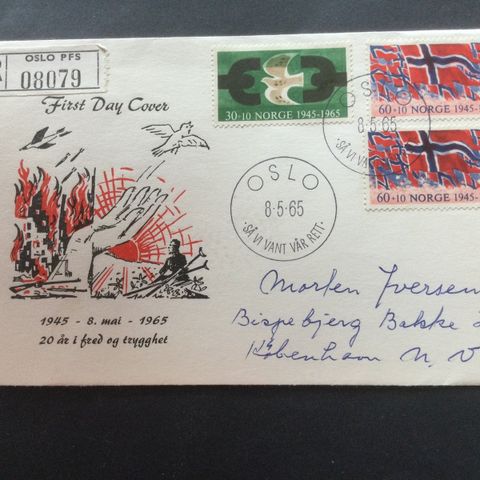 OSLO PFS
08079
First Day Cover
30+10 NORGE 1945-1965
60+10 NORGE 1945-1
60+10 NORGE 1945-
OSLO
8·5·65
·SÅ VI VANT VÅR RETT·
OSLO
8·5·65
·SÅ VI VANT VÅR RETT·
Morten Iversen
Bispebjerg Bakke
København N. V
1945 - 8. mai - 1965
20 år i fred og trygghet